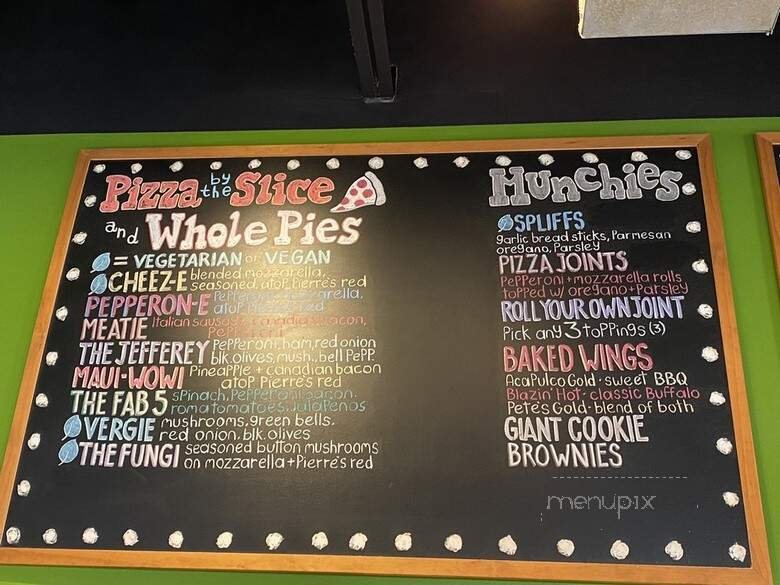 Pizza by the Slice
and Whole Pies
= VEGETARIAN or VEGAN
CHEEZ-E blended mozzarella,
seasoned, atop Pierre's red
PEPPERON-E Pepperoni, mozzarella,
atop Pierre's red
MEATIE Italian sausage, canadian bacon,
Pepperoni
THE JEFFEREY Pepperoni, ham, red onion
blk. olives, mush., bell PePP.
MAUI-WOWI Pineapple + canadian bacon
atop Pierre's red
THE FAB 5 spinach, Pepperoni, bacon,
roma tomatoes, Jalapenos
VERGIE mushrooms, green bells,
red onion, blk. olives
THE FUNGI seasoned button mushrooms
on mozzarella + Pierre's red
Munchies
SPLIFFS
garlic bread sticks, Parmesan
oregano, Parsley
PIZZA JOINTS
Pepperoni + mozzarella rolls
topped w/ oregano + Parsley
ROLL YOUR OWN JOINT
Pick any 3 toppings (3)
BAKED WINGS
Acapulco Gold · sweet BBQ
Blazin' Hot · classic Buffalo
Pete's Gold · blend of both
GIANT COOKIE
BROWNIES
menupix